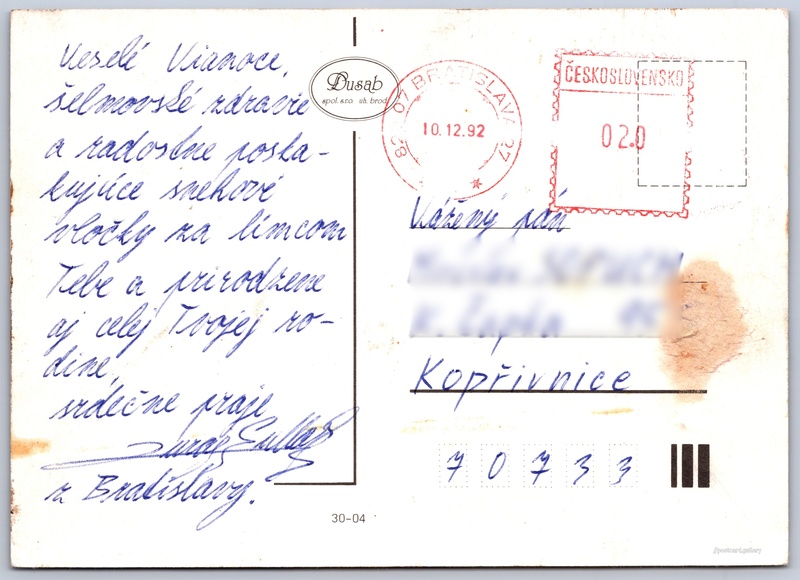 Veselé Vianoce,
šelmovské zdravie
a radostne poska-
kujúce snehové
vločky za límcom
Tebe a prirodzene
aj celej Tvojej ro-
dine,
srdečne praje
z Bratislavy.
Dusab
spol. s r.o. uh. brod
BRATISLAVA 27
10.12.92
ČESKOSLOVENSKO
02.0
Vážený pán
K. Čapka
Kopřivnice
7 0 7 3 3
30-04